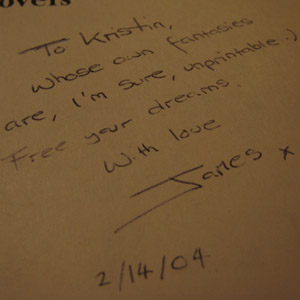 overs
To Kristin,
whose own fantasies
are, I'm sure, unprintable :)
Free your dreams.
With love
James x
2/14/04